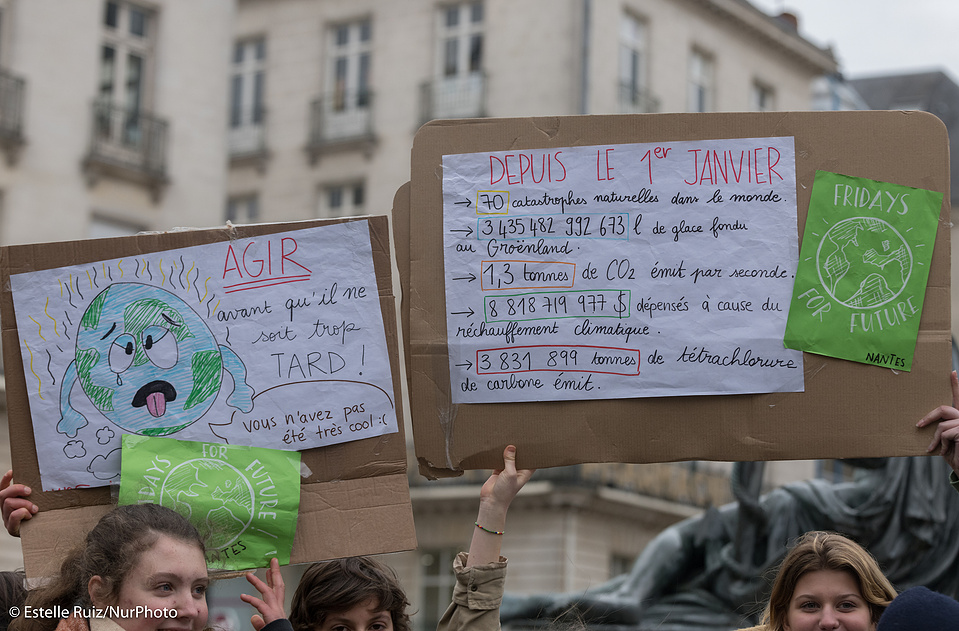 AGIR
avant qu'il ne
soit trop
TARD !
vous n'avez pas
été très cool :(
FRIDAYS FOR FUTURE !
NANTES
DEPUIS LE 1er JANVIER
→ 70 catastrophes naturelles dans le monde.
→ 3 435 482 992 673 l de glace fondu
au Groënland.
→ 1,3 tonnes de CO2 émit par seconde.
→ 8 818 719 977 $ dépensés à cause du
réchauffement climatique.
→ 3 831 899 tonnes de tétrachlorure
de carbone émit.
FRIDAYS
FOR FUTURE
NANTES
© Estelle Ruiz/NurPhoto